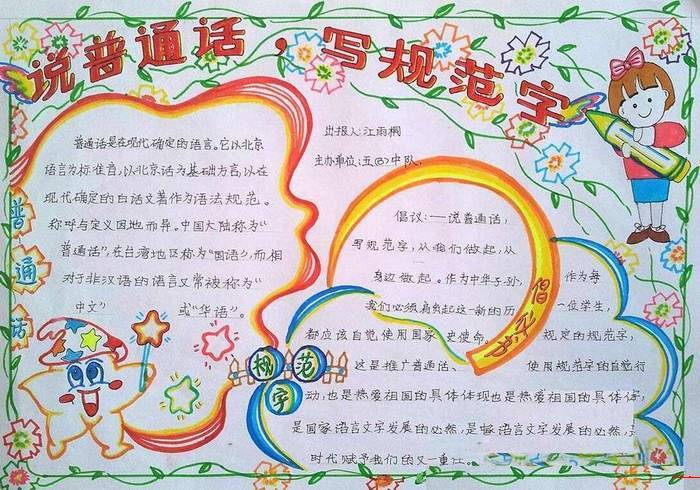 说普通话，写规范字
出报人：江雨桐
主办单位：五(3)中队
普通话是在现代确定的语言。它以北京
语言为标准音，以北京话为基础方言，以在
现代确定的白话文著作为语法规范。
称呼与定义因地而异。中国大陆称为“
普通话”，在台湾地区称为“国语”，而相
对于非汉语的语言又常被称为“
中文” 或“华语”。
普通话
规范字
倡议：——说普通话，
写规范字，从我们做起，从
身边做起。作为中华子孙，作为每
我们必须肩负起这一新的历 一位学生，
都应该自觉使用国家 史使命。 规定的规范字，
这是推广普通话、 使用规范字的自觉行
动，也是热爱祖国的具体体现也是热爱祖国的具体体
是国家语言文字发展的必然，是 语言文字发展的必然，
时代赋予我们的又一重任。
倡